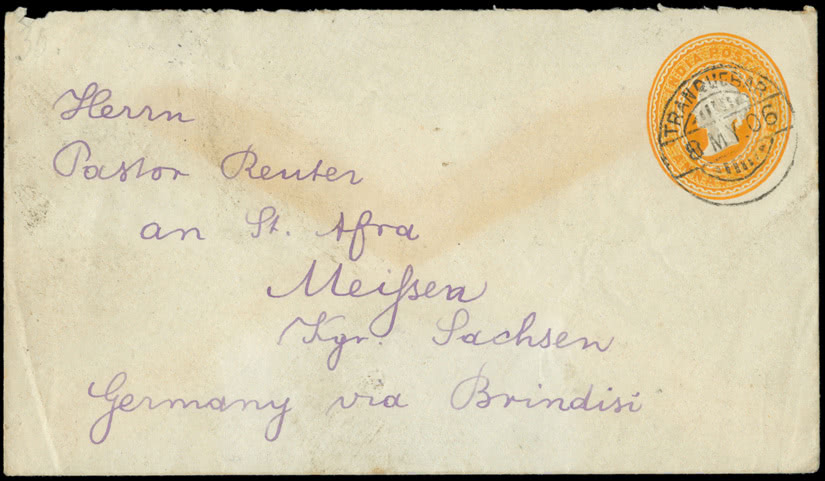 Herrn
Pastor Reuter
an St. Afra
Meißen
Kgr. Sachsen
Germany via Brindisi
INDIA POSTAGE
TRANQUEBAR
MY